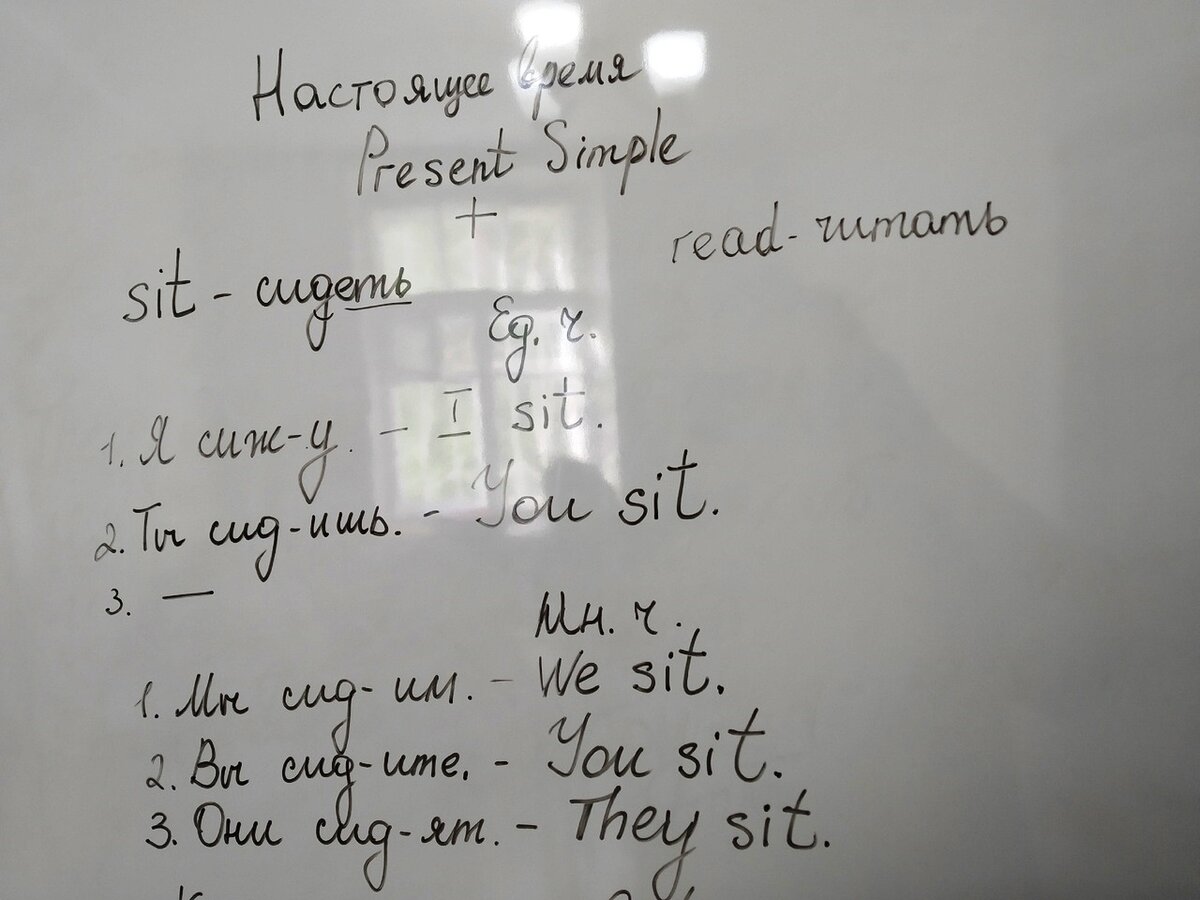 Настоящее время
Present Simple
+
read - читать
sit - сидеть
Ед. ч.
1. Я сиж-у. - I sit.
2. Ты сид-ишь. - You sit.
3. —
Мн. ч.
1. Мы сид-им. - We sit.
2. Вы сид-ите. - You sit.
3. Они сид-ят. - They sit.